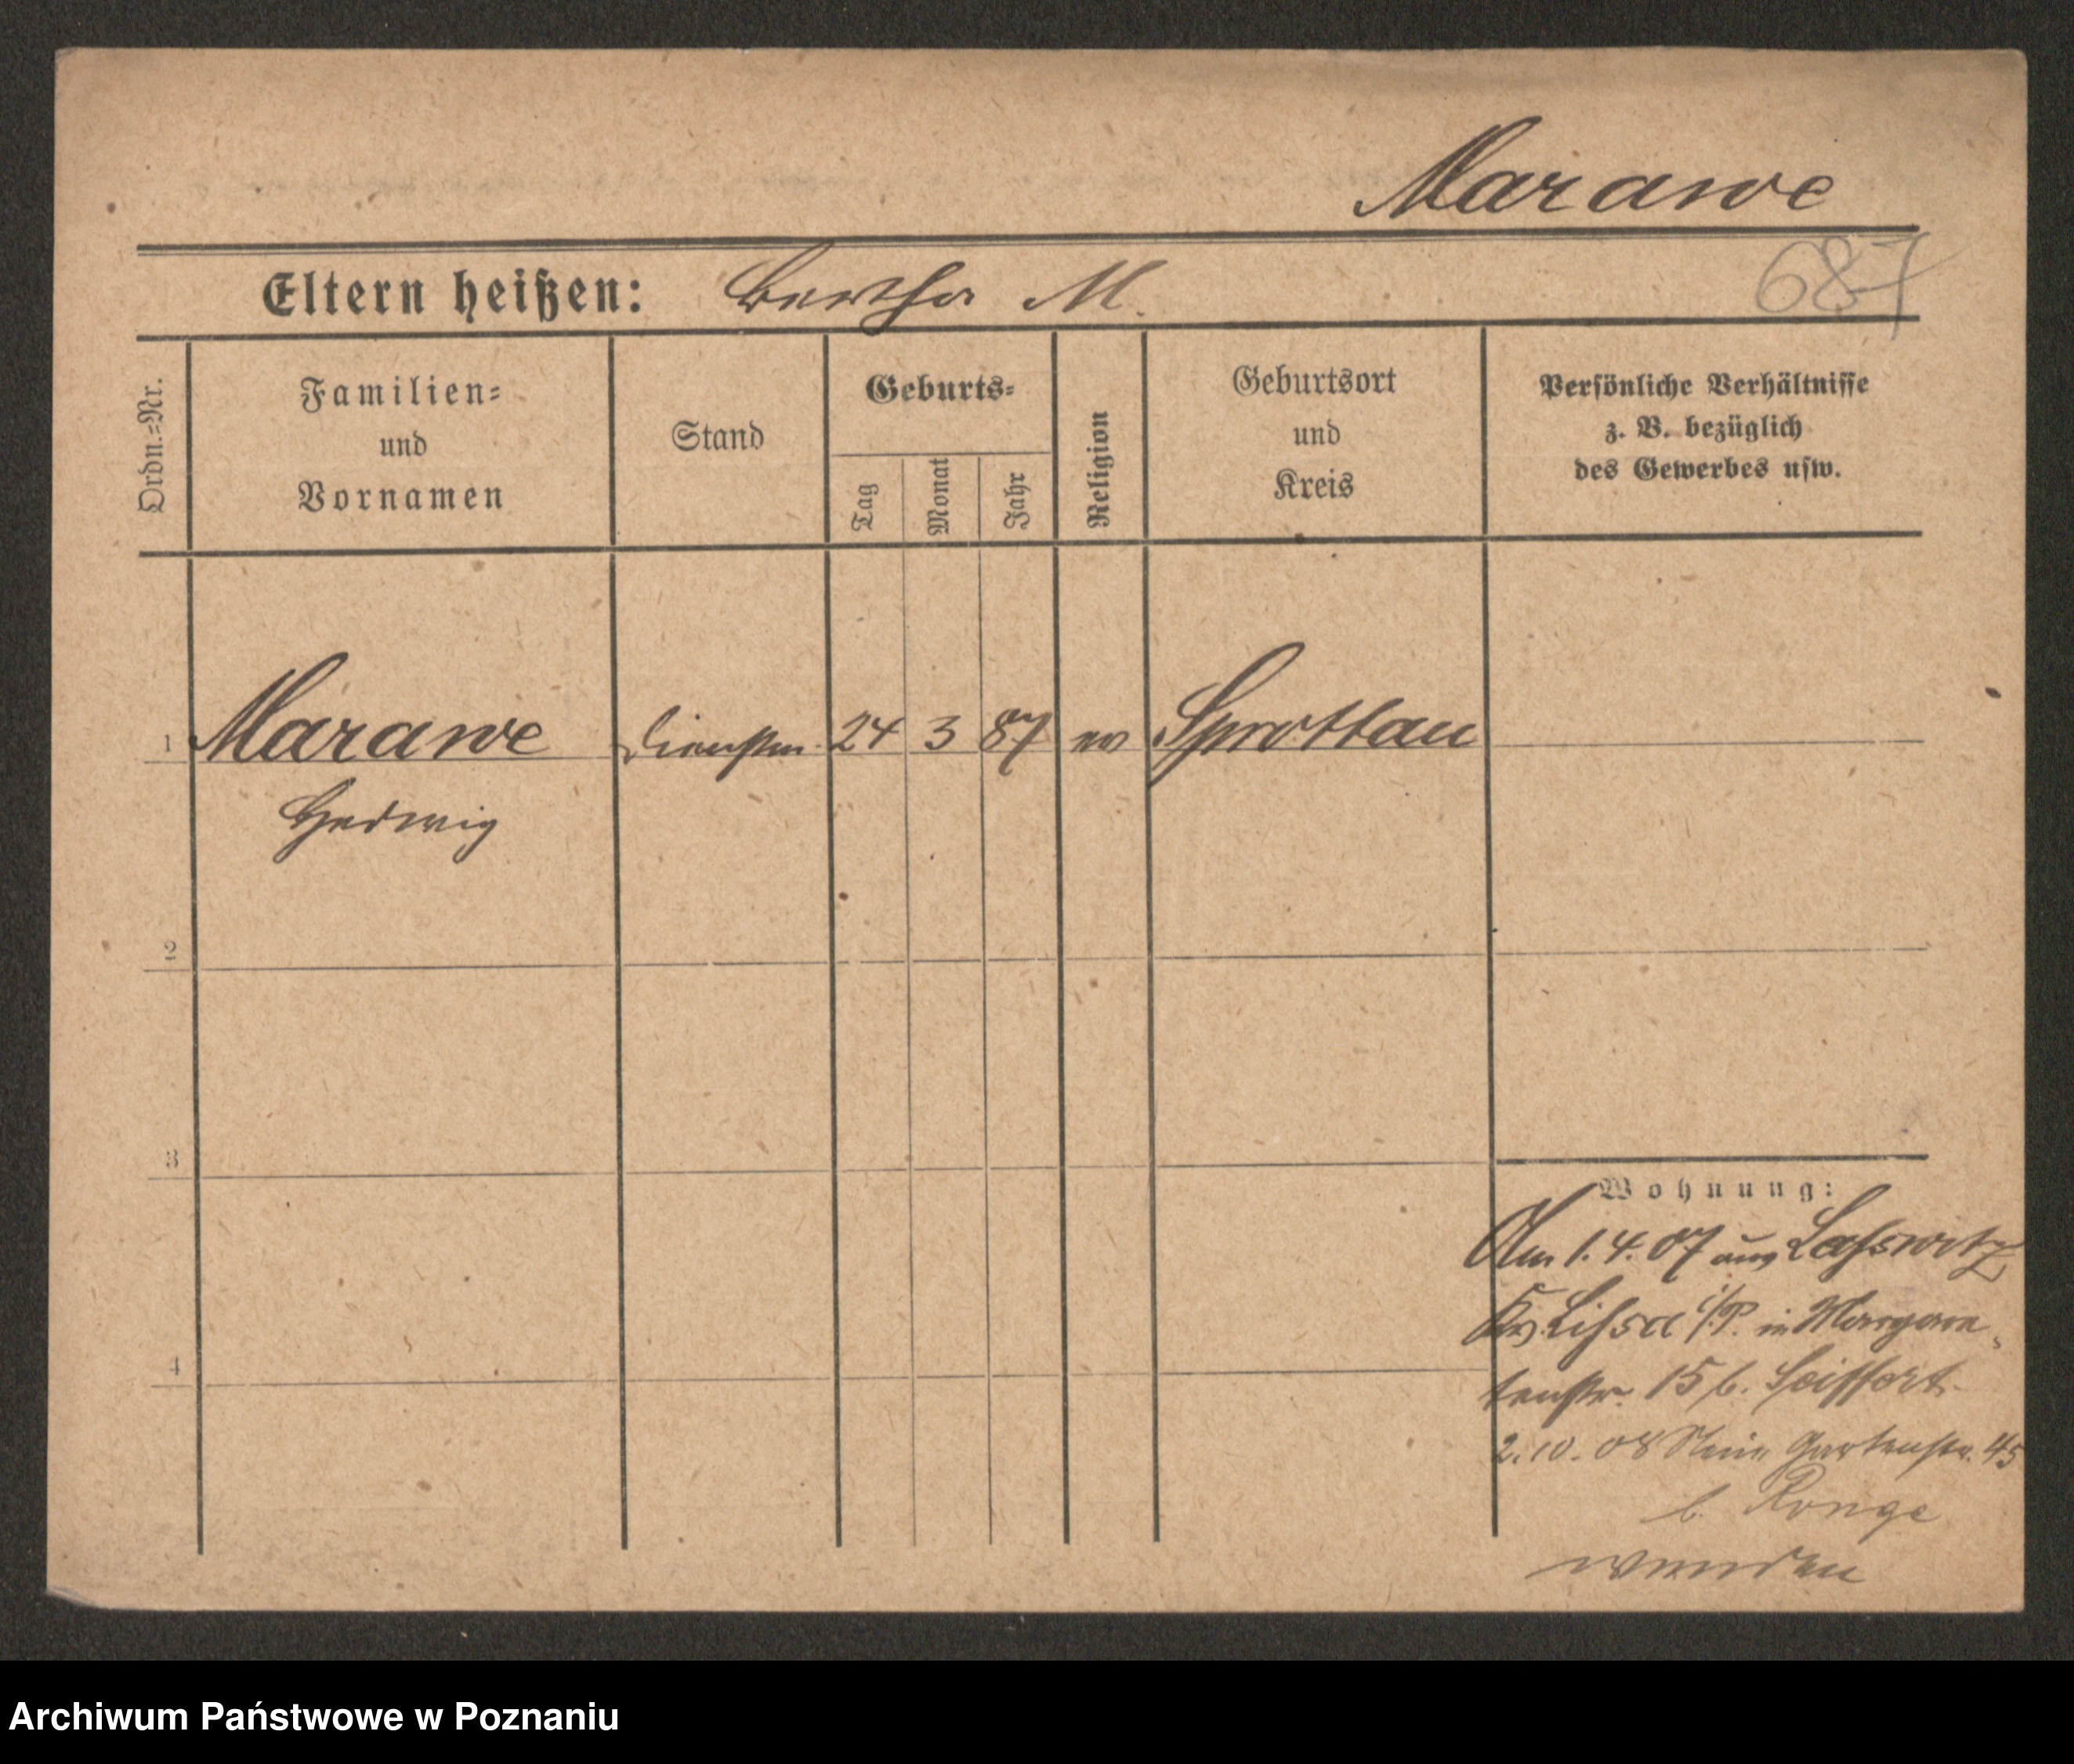 Marawe
Eltern heißen: Bertha M.
687
Ordn.=Nr.
Familien=
und
Vornamen
Stand
Geburts=
Tag
Monat
Jahr
Religion
Geburtsort
und
Kreis
Persönliche Verhältnisse
z. B. bezüglich
des Gewerbes usw.
1 Marawe Dienstm. 24 3 87 ev Sprottau
Hedwig
2
3
4
Wohnung:
Am 1.4.07 aus Laßwitz
Krs Lissa i/P. in Margare
tenstr. 15 b. Seiffert
2.10.08 Gartenstr. 45
b. Ronge
wenden
Archiwum Państwowe w Poznaniu